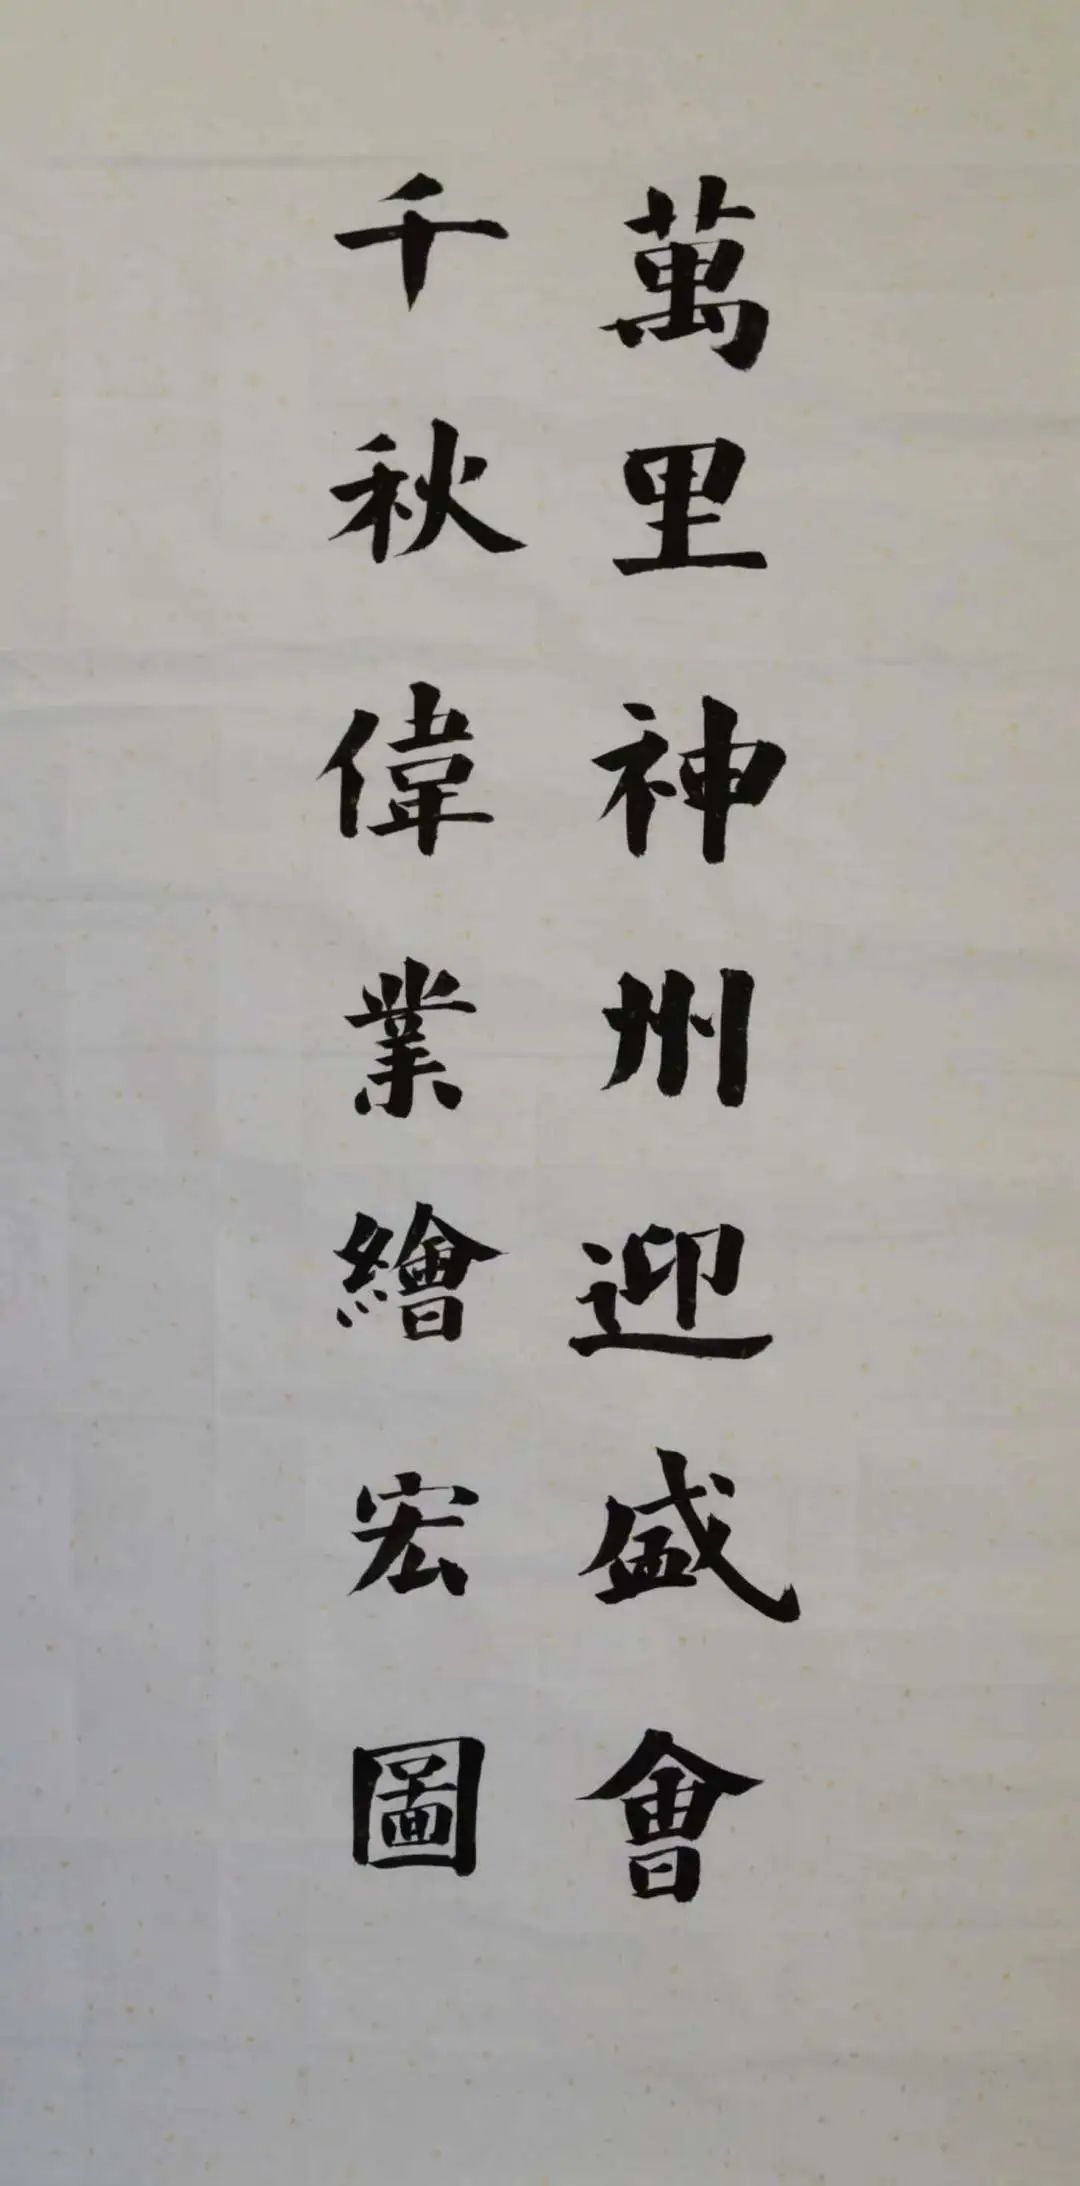 萬里神州迎盛會
千秋偉業繪宏圖